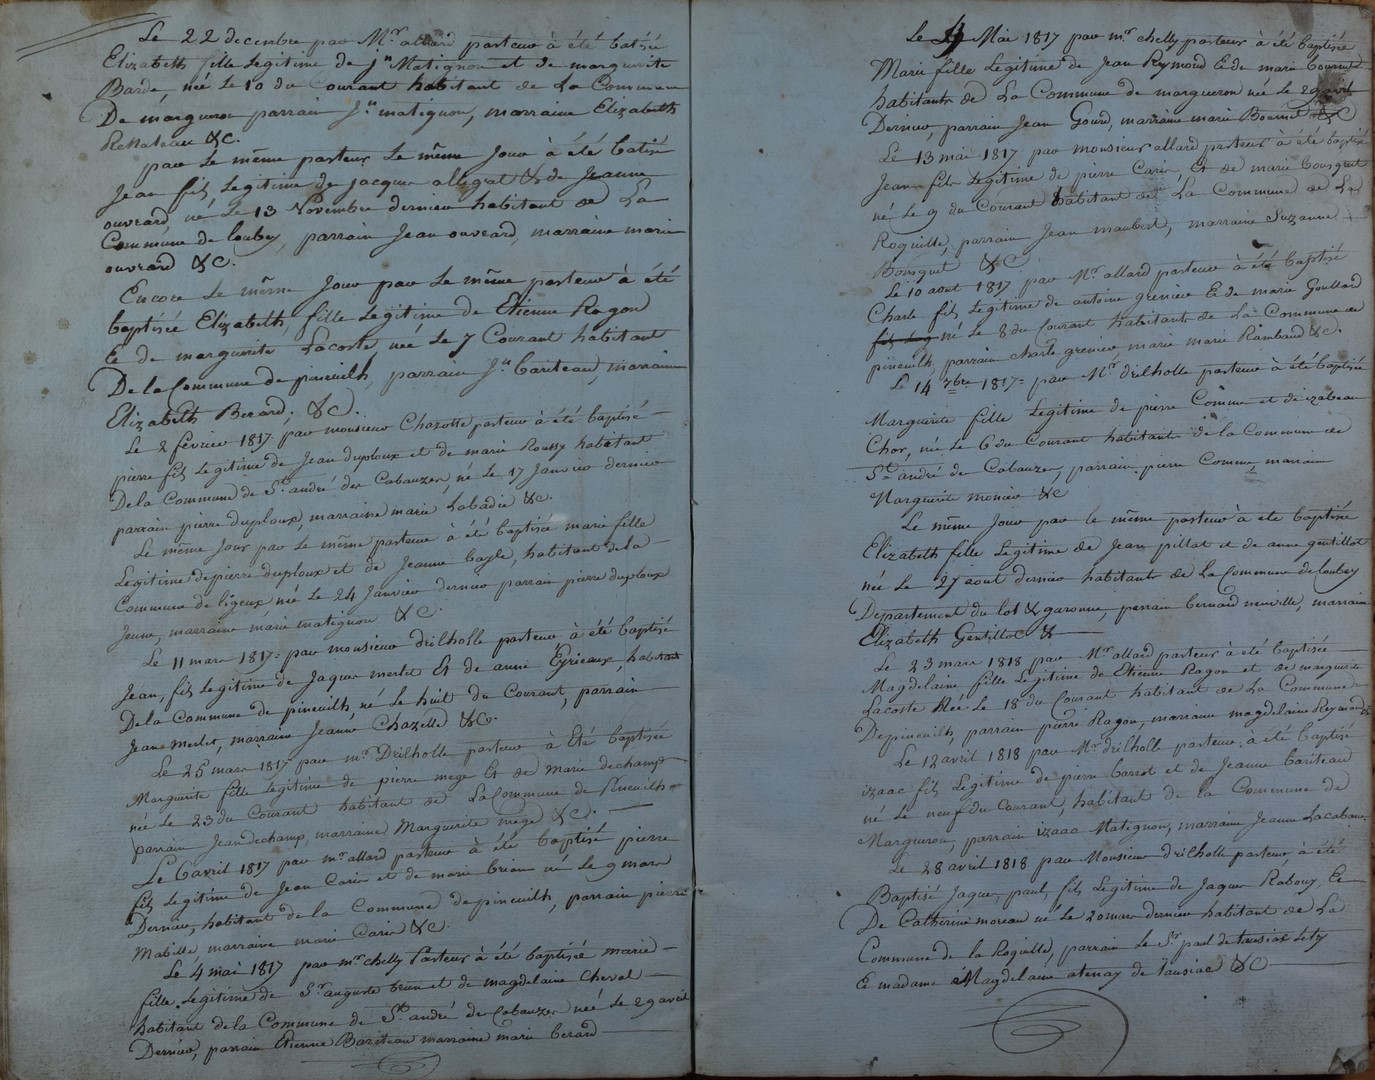 Le 22 decembre par Mr. allard pasteur à été batisée
Elizabeth fille Legitime de Jn. Matignon et de marguerite
Barde, née Le 10 du Courant habitant de La Commune
De margueron parrain Jn. matignon, marraine Elizabeth
&c.
par Le même pasteur Le même Jour à été batisé
Jean fils Legitime de Jacques allegret & de Jeanne
ouvrard, né Le 13 Novembre dernier habitant de La
Commune de loubey, parrain Jean ouvrard, marraine marie
ouvrard &c.
Encore Le même Jour par Le même pasteur à été
baptisée Elizabeth, fille Legitime de Etienne Ragon
E de marguerite Lacoste née Le 7 Courant habitant
De la Commune de pineuilh, parrain Jn. bariteau, marraine
Elizabeth Berard; &c.
Le 2 février 1817. par monsieur Chazotte pasteur à été baptisé
pierre fils Legitime de Jean duploux et de marie Roussy habitant
De la Commune de St. andré de Cabauzes, né Le 17 Janvier dernier
parrain pierre duploux, marraine marie Labadie &c.
Le même Jour par Le même pasteur à été baptisée marie fille
Legitime de pierre duploux et de Jeanne bayle, habitant de la
Commune de ligeux née Le 24 Janvier dernier parrain pierre duploux
Jeune, marraine marie matignon &c.
Le 11 mars 1817: par monsieur drilholle pasteur à été baptisé
Jean, fils Legitime de Jaques merlet Et de anne Eyriaux, habitant
De la Commune de pineuilh, né Le huit du Courant, parrain
Jean Merlet, marraine Jeanne Chazelle &c.
Le 25 mars 1817 par mr. Drilholle pasteur à Eté baptisée
Marguerite fille Legitime de pierre mege Et de Marie dechamp
née Le 23 du Courant habitant de La Commune de Pineuilh
parrain Jean dechamp, marraine Marguerite mege &c.
Le 6 avril 1817 par mr. allard pasteur à été baptisé pierre
fils Legitime de Jean Carier et de marie brian né Le 9 mars
Dernier, habitant de la Commune de pineuilh, parrain pierre
Mabille marraine marie Carier &c.
Le 4 mai 1817 par mr. chelly Pasteur à été baptisée marie
fille Legitime de Sr. auguste brun et de magdelaine Cheval
habitant de la Commune de St. andré de Cabauzes née Le 29 avril
Dernier, parrain Etienne Bariteau marraine marie berard
Le 4 Mai 1817 par mr. chelly pasteur à été baptisée
Marie fille Legitime de Jean Reymond E de marie bournet
habitants de La Commune de margueron née Le 29 avril
Dernier, parrain Jean Gourd, marraine marie Bournet &c
Le 13 mai 1817 par monsieur allard pasteur à été baptisé
Jean fils Legitime de pierre Carier Et de marie bousquet
né Le 9 du Courant habitant de La Commune de La
Roquille, parrain Jean maubert, marraine Suzanne
Bousquet &c
Le 10 aout 1817 par Mr. allard pasteur à été baptisé
Charle fils Legitime de antoine greniere E de marie Goullard
fils Leg né Le 8 du Courant habitants de La Commune de
pineuilh, parrain charle greniere marie marie Rambaud &c.
Le 14 7bre 1817= par Mr. drilholle pasteur à été baptisée
Marguerite fille Legitime de pierre Comme et de izabeau
Chor, née Le 6 du Courant habitants de la Commune de
St. andré de Cabauzes, parrain pierre Comme, marraine
Marguerite monier &c
Le même Jour par le même pasteur à été baptisée
Elizabeth fille Legitime de Jean pillot et de anne gentillot
née Le 27 aout dernier habitants de La Commune de loubey
Departement du lot & garonne, parrain bernard neuville, marraine
Elizabeth Gentillot &
Le 23 mars 1818 par Mr. allard pasteur à été baptisée
Magdelaine fille Legitime de Etienne Ragon et de marguerite
Lacoste Née Le 18 du Courant habitant de La Commune
De pineuilh, parrain pierre Ragon, marraine magdelaine Reynaud &
Le 12 avril 1818 par Mr. drilholle pasteur, à été baptisé
izaac fils Legitime de pierre barrot et de Jeanne bariteau
né Le neuf du Courant, habitant de la Commune de
Margueron, parrain izaac Matignon, marraine Jeanne Lacaban
Le 28 avril 1818 par Monsieur drilholle pasteur à été
Baptisé Jaques, paul, fils Legitime de Jaques Rabouy, E
De Catherine moreau né Le 20 mars dernier habitant de La
Commune de la Roquille, parrain Le Sr. paul de tausiac
E madame Magdelaine atenay de tausiac &c